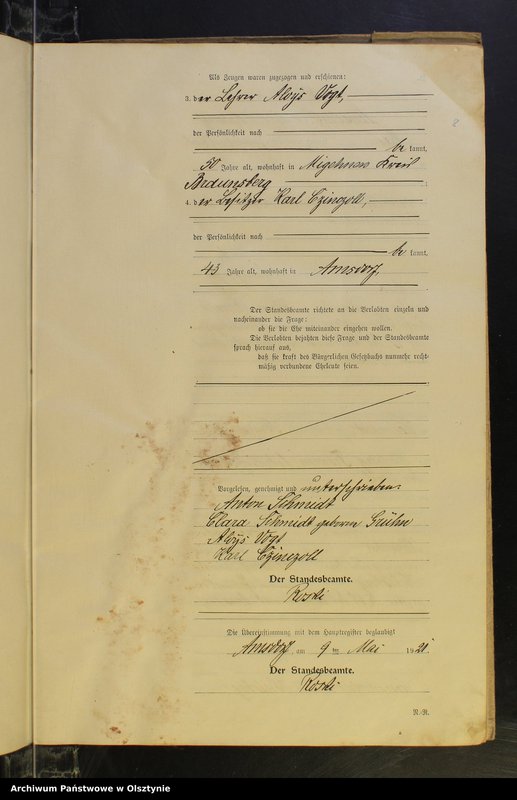 Als Zeugen waren zugezogen und erschienen:
3. der Lehrer Aloys Vogt,
der Persönlichkeit nach
be kannt,
50 Jahre alt, wohnhaft in Migehnen Kreis
Braunsberg
4. der Besitzer Karl Czinczoll,
der Persönlichkeit nach
be kannt,
43 Jahre alt, wohnhaft in Arnsdorf.
Der Standesbeamte richtete an die Verlobten einzeln und
nacheinander die Frage:
ob sie die Ehe miteinander eingehen wollen.
Die Verlobten bejahten diese Frage und der Standesbeamte
sprach hierauf aus,
daß sie kraft des Bürgerlichen Gesetzbuchs nunmehr recht-
mäßig verbundene Eheleute seien.
Vorgelesen, genehmigt und unterschrieben:
Anton Schmidt
Clara Schmidt geboren Grühn
Aloys Vogt
Karl Czinczoll
Der Standesbeamte.
Roski
Die Übereinstimmung mit dem Hauptregister beglaubigt
Arnsdorf am 9 ten Mai 1921
Der Standesbeamte.
Roski
Archiwum Państwowe w Olsztynie